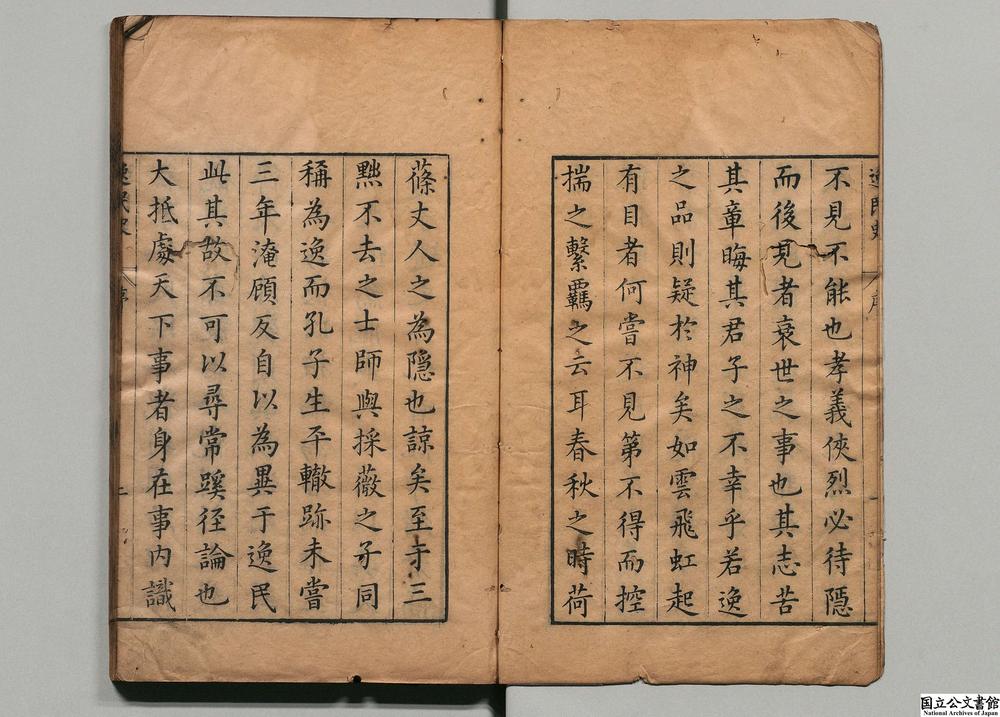 不見不能也孝義俠烈必待隠
而後見者衰世之事也其志苦
其章晦其君子之不幸乎若逸
之品則疑於神矣如雲飛虹起
有目者何嘗不見第不得而控
揣之繫羈之云耳春秋之時荷
蓧丈人之為隠也諒矣至于三
黜不去之士師與採薇之子同
稱為逸而孔子生平轍跡未嘗
三年淹顧反自以為異于逸民
此其故不可以尋常蹊徑論也
大抵處天下事者身在事内識
国立公文書館
National Archives of Japan